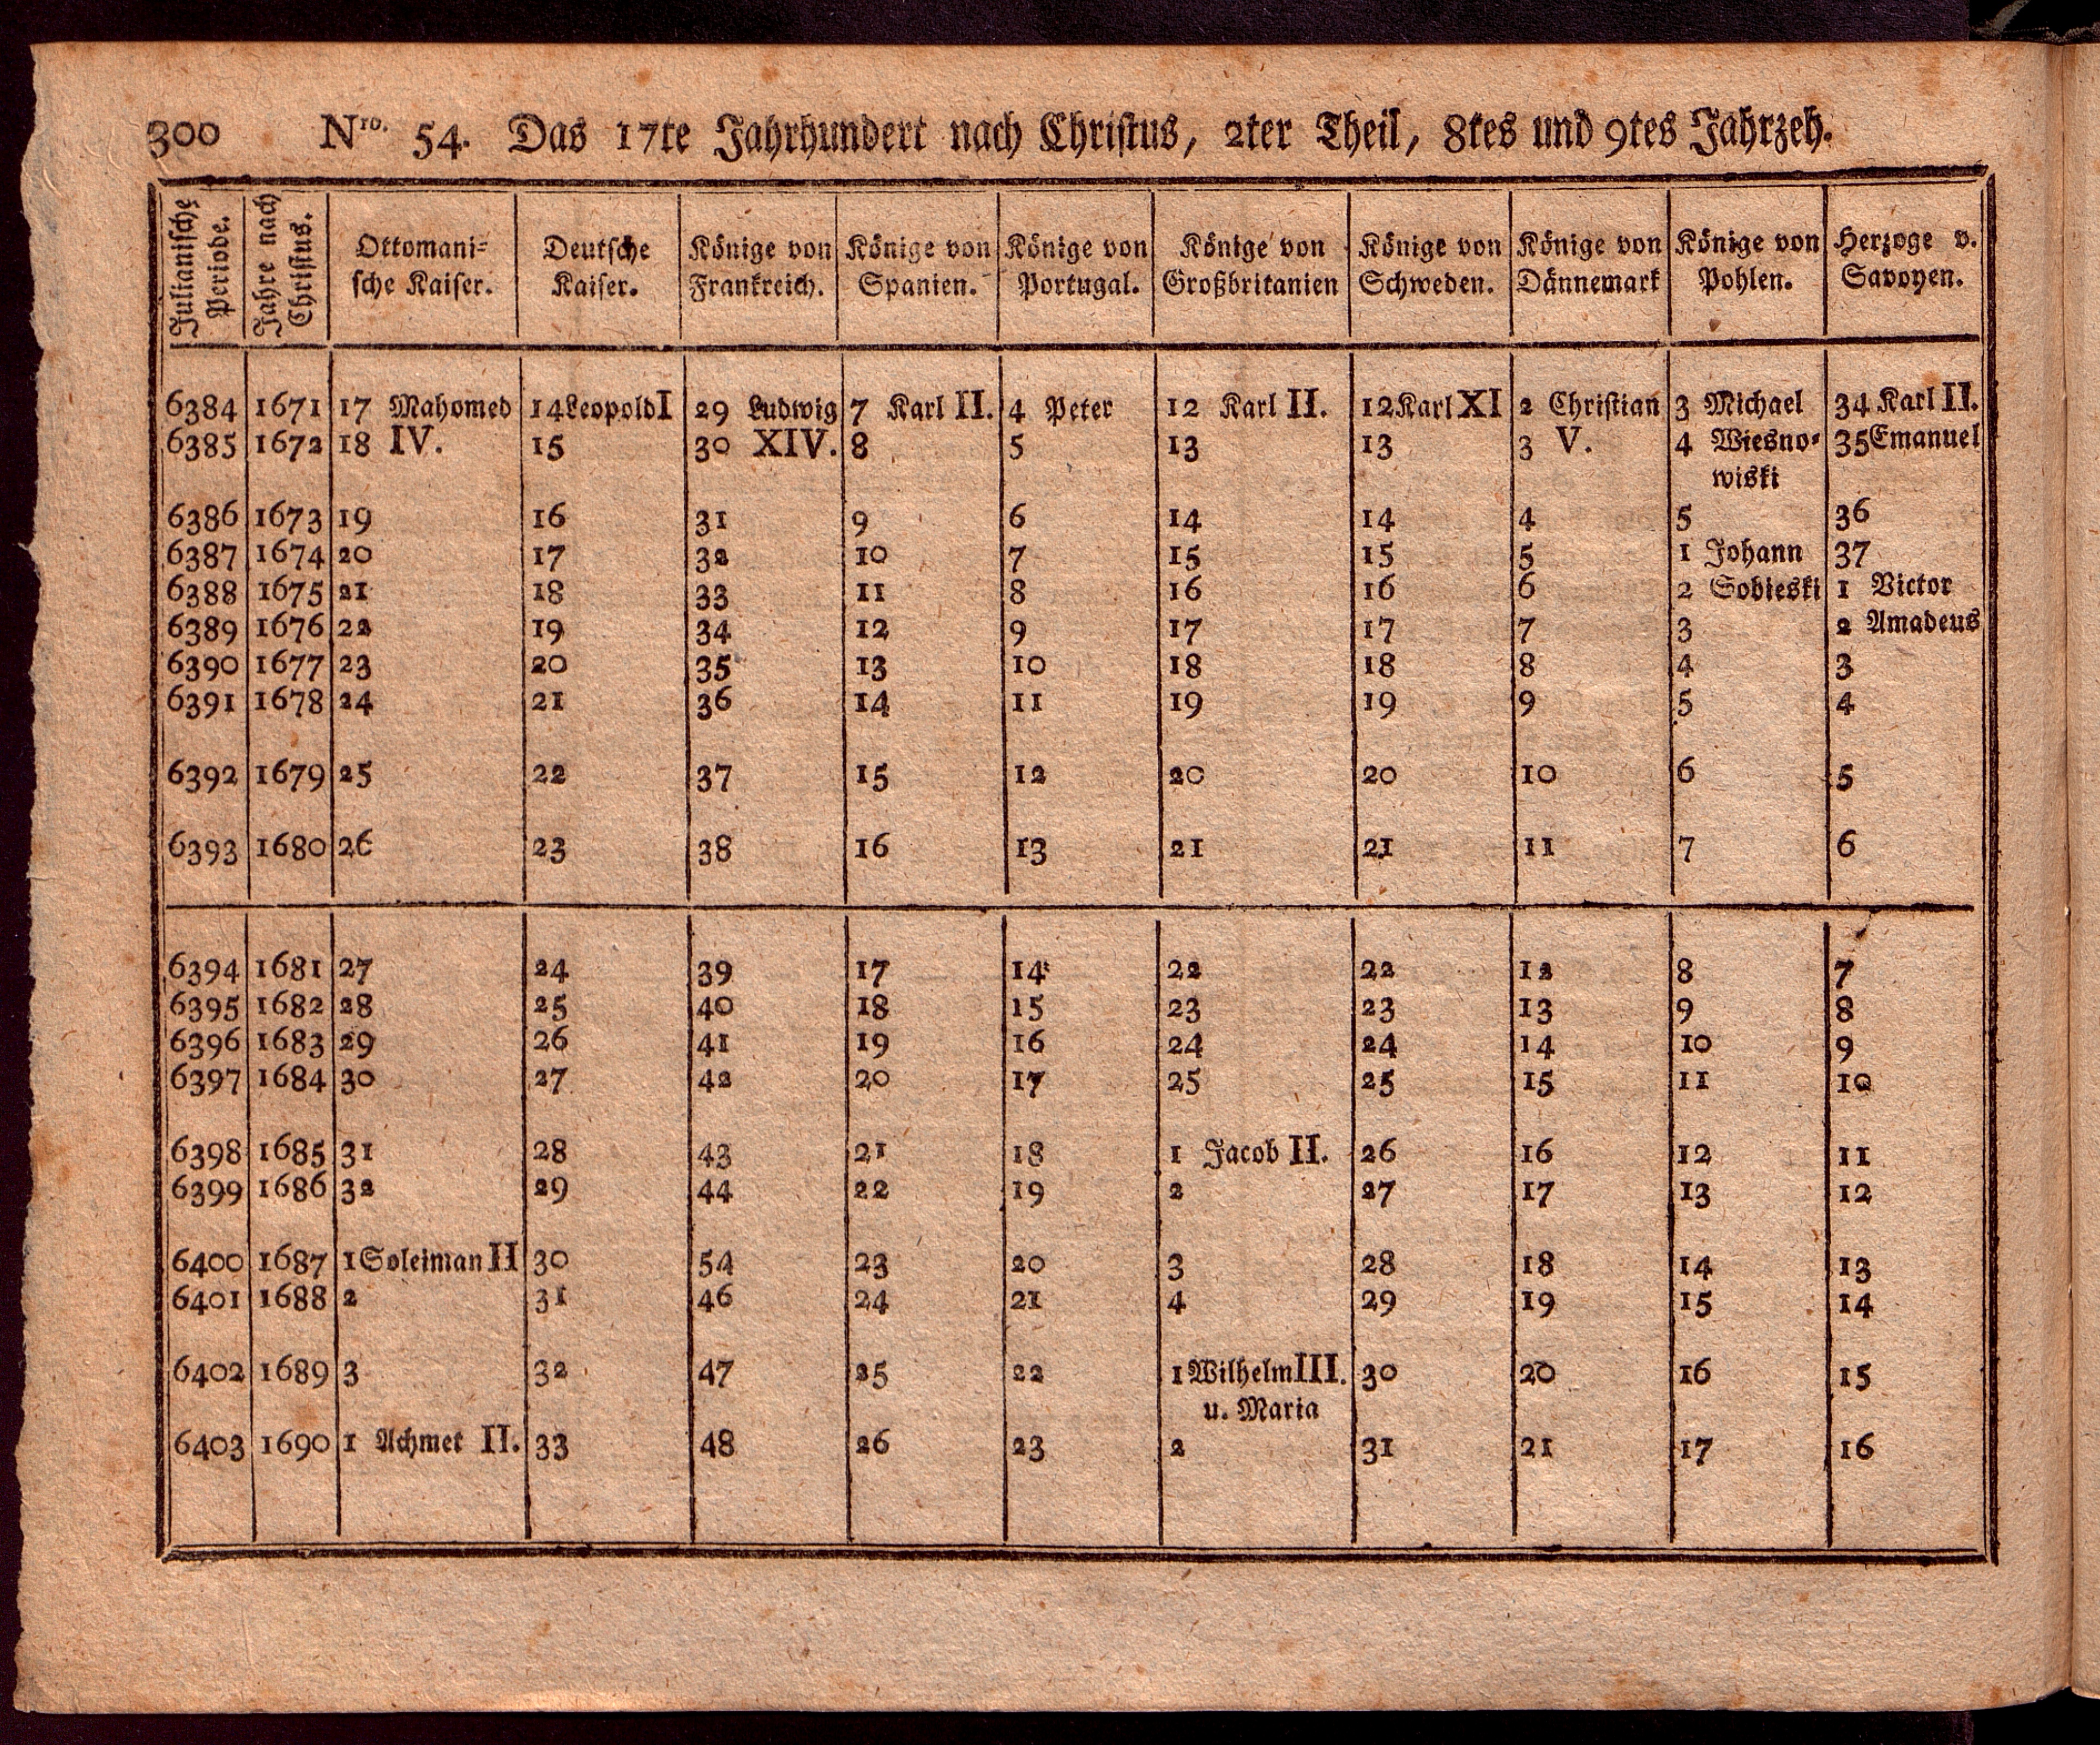 300 Nro. 54. Das 17te Jahrhundert nach Christus, 2ter Theil, 8tes und 9tes Jahrzeh.
Julianische Periode. | Jahre nach Christus. | Ottomani= | Deutsche | Könige von | Könige von | Könige von | Könige von | Könige von | Könige von | Könige von | Herzoge v.
sche Kaiser. | Kaiser. | Frankreich. | Spanien. | Portugal. | Großbritanien | Schweden. | Dännemark | Pohlen. | Savoyen.
6384 | 1671 | 17 Mahomed | 14 Leopold I | 29 Ludwig | 7 Karl II. | 4 Peter | 12 Karl II. | 12 Karl XI | 2 Christian | 3 Michael | 34 Karl II.
6385 | 1672 | 18 IV. | 15 | 30 XIV. | 8 | 5 | 13 | 13 | 3 V. | 4 Wiesno= | 35 Emanuel
wiski
6386 | 1673 | 19 | 16 | 31 | 9 | 6 | 14 | 14 | 4 | 5 | 36
6387 | 1674 | 20 | 17 | 32 | 10 | 7 | 15 | 15 | 5 | 1 Johann | 37
6388 | 1675 | 21 | 18 | 33 | 11 | 8 | 16 | 16 | 6 | 2 Sobieski | 1 Victor
6389 | 1676 | 22 | 19 | 34 | 12 | 9 | 17 | 17 | 7 | 3 | 2 Amadeus
6390 | 1677 | 23 | 20 | 35 | 13 | 10 | 18 | 18 | 8 | 4 | 3
6391 | 1678 | 24 | 21 | 36 | 14 | 11 | 19 | 19 | 9 | 5 | 4
6392 | 1679 | 25 | 22 | 37 | 15 | 12 | 20 | 20 | 10 | 6 | 5
6393 | 1680 | 26 | 23 | 38 | 16 | 13 | 21 | 21 | 11 | 7 | 6
6394 | 1681 | 27 | 24 | 39 | 17 | 14 | 22 | 22 | 12 | 8 | 7
6395 | 1682 | 28 | 25 | 40 | 18 | 15 | 23 | 23 | 13 | 9 | 8
6396 | 1683 | 29 | 26 | 41 | 19 | 16 | 24 | 24 | 14 | 10 | 9
6397 | 1684 | 30 | 27 | 42 | 20 | 17 | 25 | 25 | 15 | 11 | 10
6398 | 1685 | 31 | 28 | 43 | 21 | 18 | 1 Jacob II. | 26 | 16 | 12 | 11
6399 | 1686 | 32 | 29 | 44 | 22 | 19 | 2 | 27 | 17 | 13 | 12
6400 | 1687 | 1 Soleiman II | 30 | 54 | 23 | 20 | 3 | 28 | 18 | 14 | 13
6401 | 1688 | 2 | 31 | 46 | 24 | 21 | 4 | 29 | 19 | 15 | 14
6402 | 1689 | 3 | 32 | 47 | 25 | 22 | 1 Wilhelm III. | 30 | 20 | 16 | 15
u. Maria
6403 | 1690 | 1 Achmet II. | 33 | 48 | 26 | 23 | 2 | 31 | 21 | 17 | 16